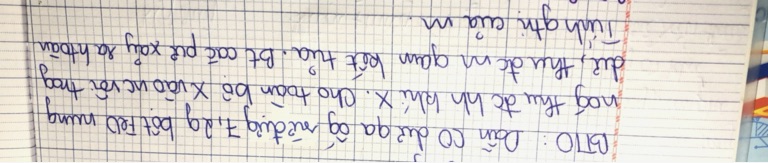 BT10: Dẫn CO dư qa ốg sứ đựg 7,2g bột FeO nung
nóg thu đc hh khí X. Cho toàn bộ X vào nc vôi trog
dư, thu đc m gam kết tủa. Bt các pứ xảy ra htoàn
Tính gtrị của m.